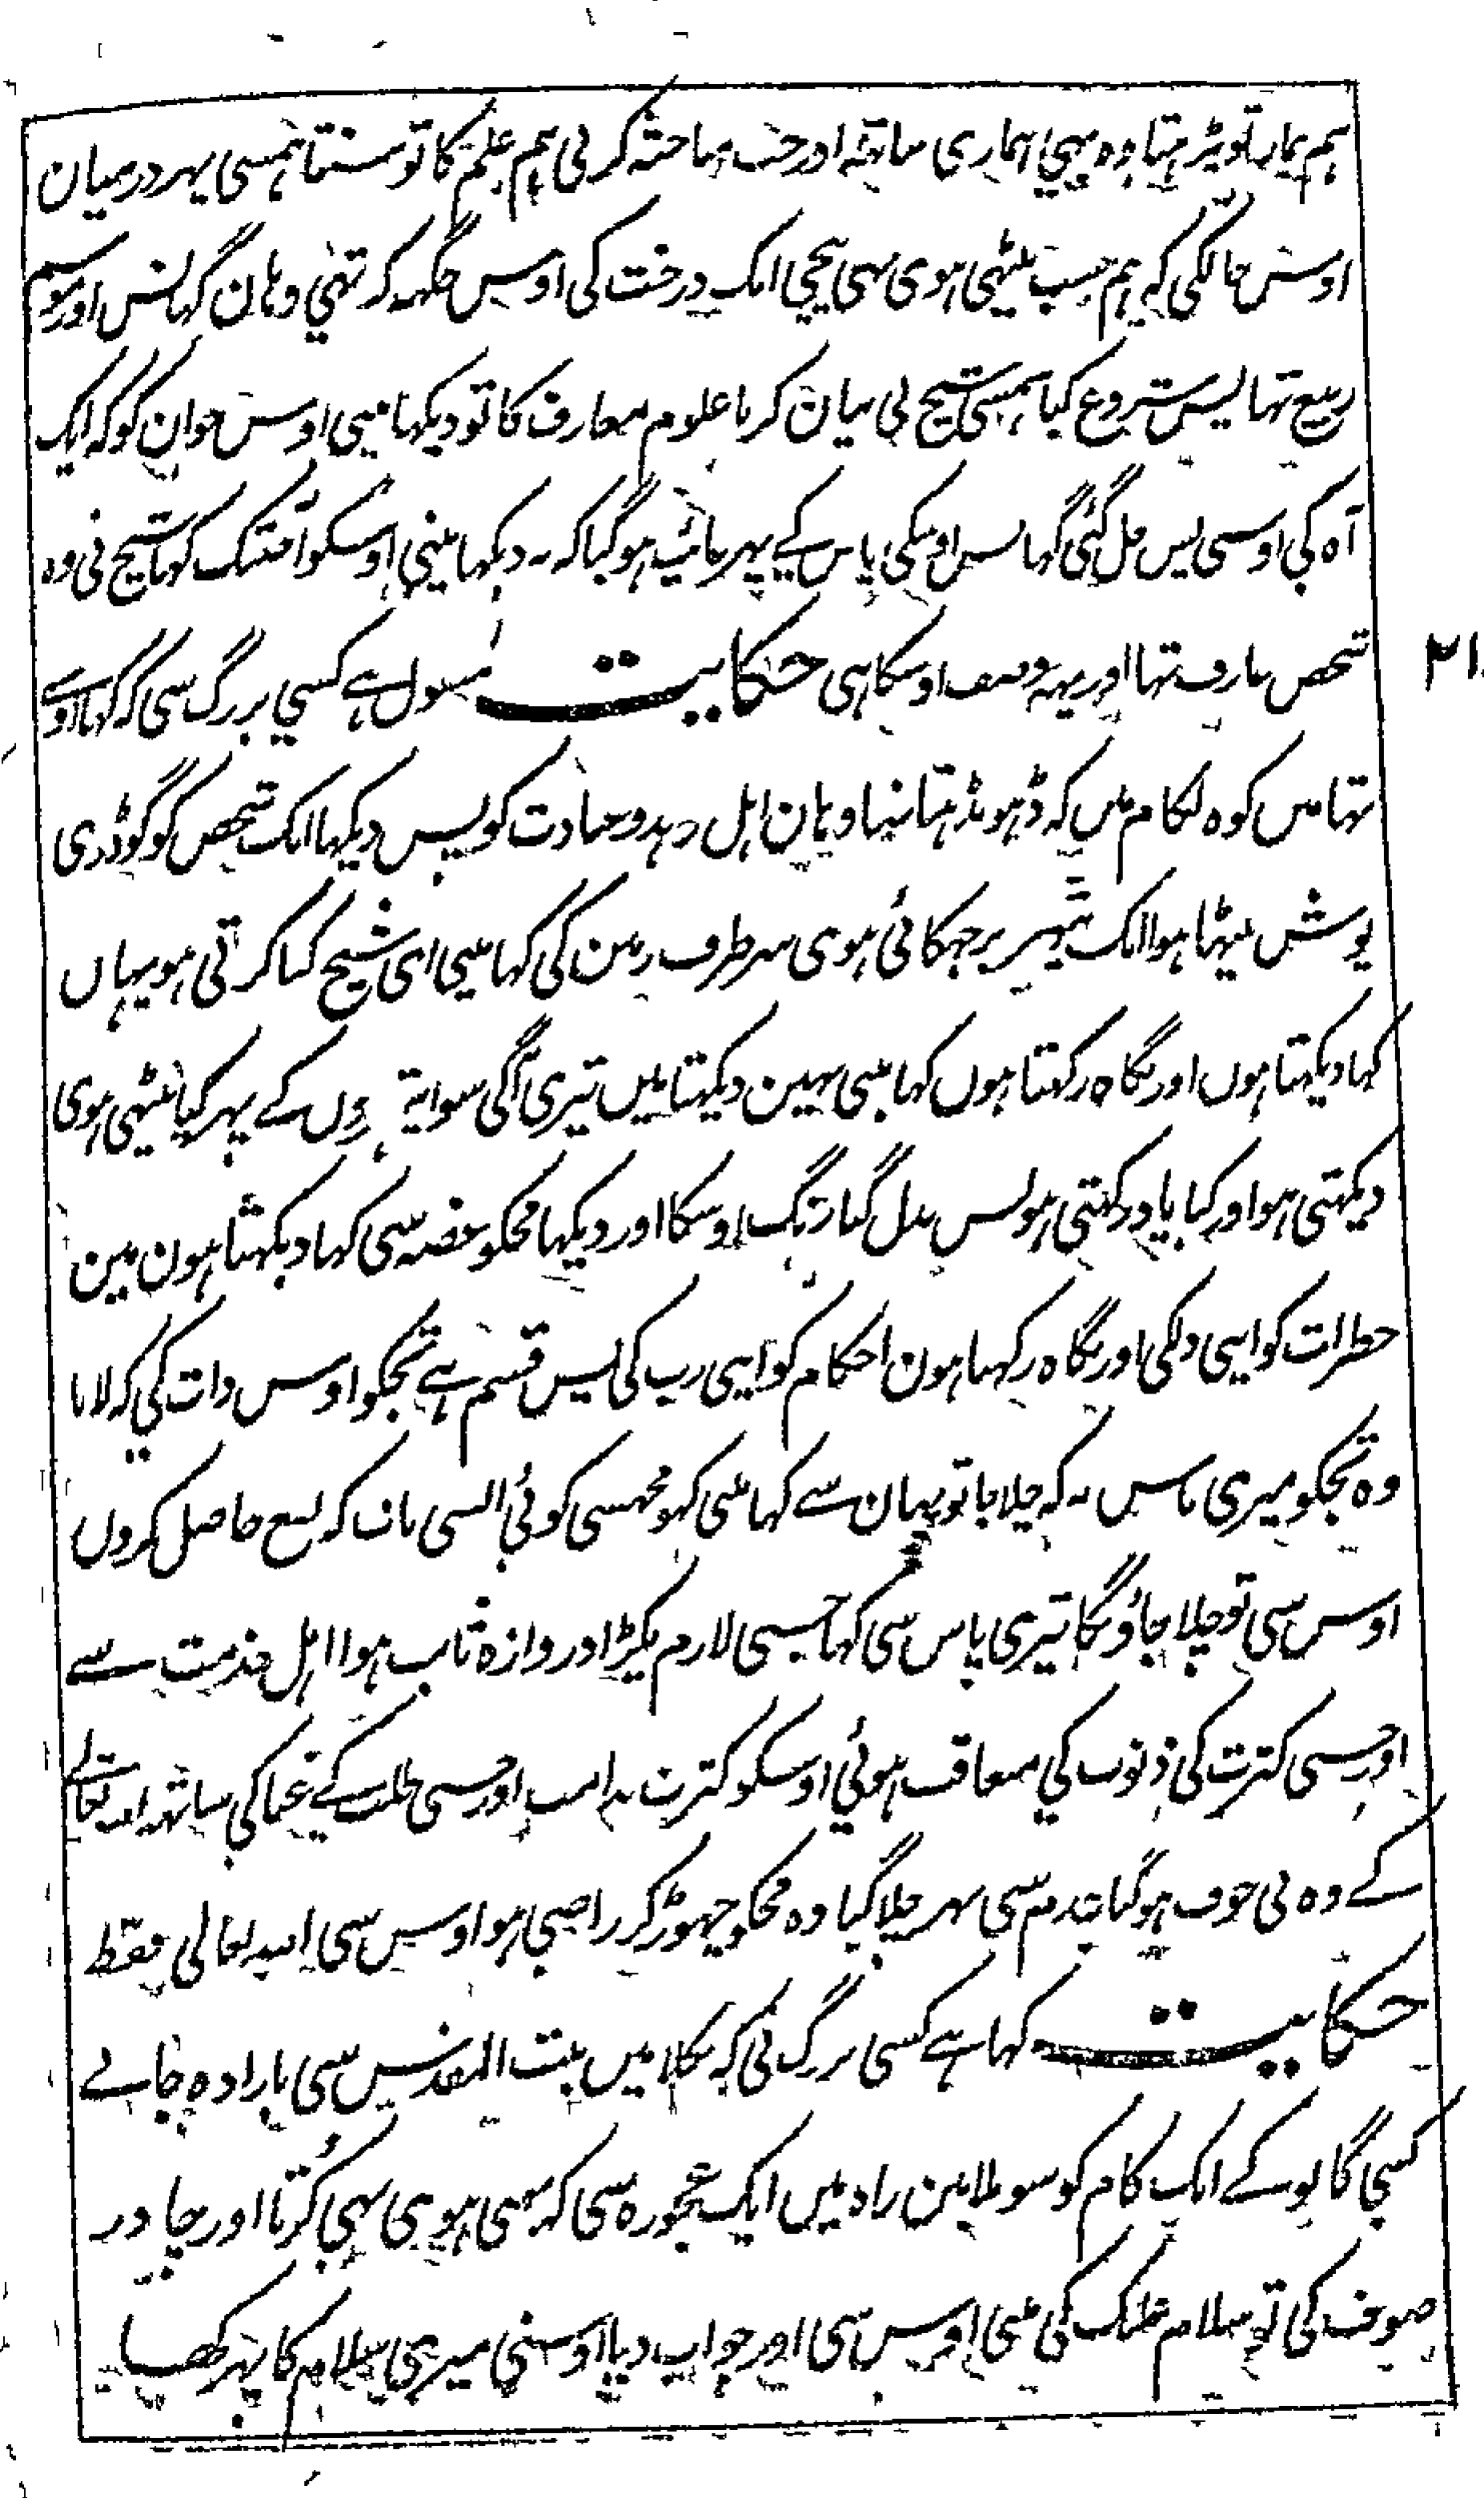 ہم نماز تو پڑہتا وہ بہی ہماری ساتہہ اور جب مباحثہ کرتی ہم علم کا تو سنتا ہمسی پہر درمیان
اوس حالکی کہ ہم جب بیٹہی ہوی تہی نیچی ایک درخت کی اوس جگہہ کہ تہی وہان گہانس اور موسم
ربیع تہا پس شروع کیا ہمسی شیخ نی بیان کرنا علوم معارف کا تو دیکہا مینی اوس جوان کو کہ ایک
آہ کی اوسی پس جل گئی گہانس اوسکی پاس کے پہر غائب ہو گیا کہ نہ دیکہا مینی اوسکو اب تک کہا شیخ نی وہ
شخص عارف تہا اور یہہ وصف اوسکا ہی حکایت منقول ہے کسی بزرگ سی کہ کہا اوسنے
۲۱
تہا میں کوہ لکام میں کہ ڈہونڈہتا تہا وہان اہل زہد و عبادت کو پس دیکہا ایک شخص کو گوڈری
پوش بیٹہا ہوا ایک پتہر پر جہکائی ہوی سر طرف زمین کی کہا مینی ای شیخ کیا کرتی ہو یہاں
کہا دیکہتا ہوں اور نگاہ رکہتا ہوں کہا مینی نہین دیکہتا میں تیری آگی سوا پتہروں کے پہر کیا بیٹہی ہوی
دیکہتی ہو اور کیا یاد رکہتی ہو پس بدل گیا رنگ اوسکا اور دیکہا مجکو غصہ سی کہا دیکہتا ہون مین
خطرات کو اپنی دلکی اور نگاہ رکہتا ہون احکام کو اپنی رب کی پس قسم ہے تجکو اوس ذات کی کہ لایا
وہ تجکو میری پاس نہ کہ چلا جا تو یہان سے کہا مینی کہو مجہسی کوئی ایسی بات کہ نفع حاصل کروں
اوس سی تو چلا جاؤنگا تیری پاس سی کہا جسنی لازم پکڑا دروازہ ثابت ہوا اہل خدمت سے
اور جسی کثرت کی ذنوب کی معاف ہوئی اوسکو کثرت ندامت اور جسی طلب کے غنا کی ساتہہ اللہ تعالی
کے وہ بی خوف ہو گیا عدم سی پہر چلا گیا وہ مجکو چہوڑ کر راضی ہو اوس سی اللہ تعالی فقط
حکایت کہا ہے کسی بزرگ نی کہ نکلا میں بیت المقدس سی بارادہ جانے
کسی گانو کے ایک کام کو سو ملا مین راہ میں ایک عجوزہ سی کہ پہنی ہوی تہی کُرتا اور چادر
صوف کی تو سلام علیک کی مینی اوس سی اور جواب دیا اوسنی میری سلام کا پہر کہا